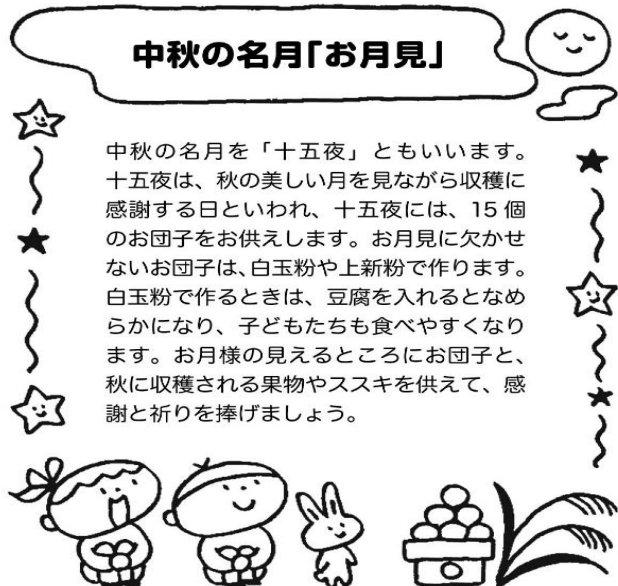 中秋の名月「お月見」
中秋の名月を「十五夜」ともいいます。
十五夜は、秋の美しい月を見ながら収穫に
感謝する日といわれ、十五夜には、15個
のお団子をお供えします。お月見に欠かせ
ないお団子は、白玉粉や上新粉で作ります。
白玉粉で作るときは、豆腐を入れるとなめ
らかになり、子どもたちも食べやすくなり
ます。お月様の見えるところにお団子と、
秋に収穫される果物やススキを供えて、感
謝と祈りを捧げましょう。